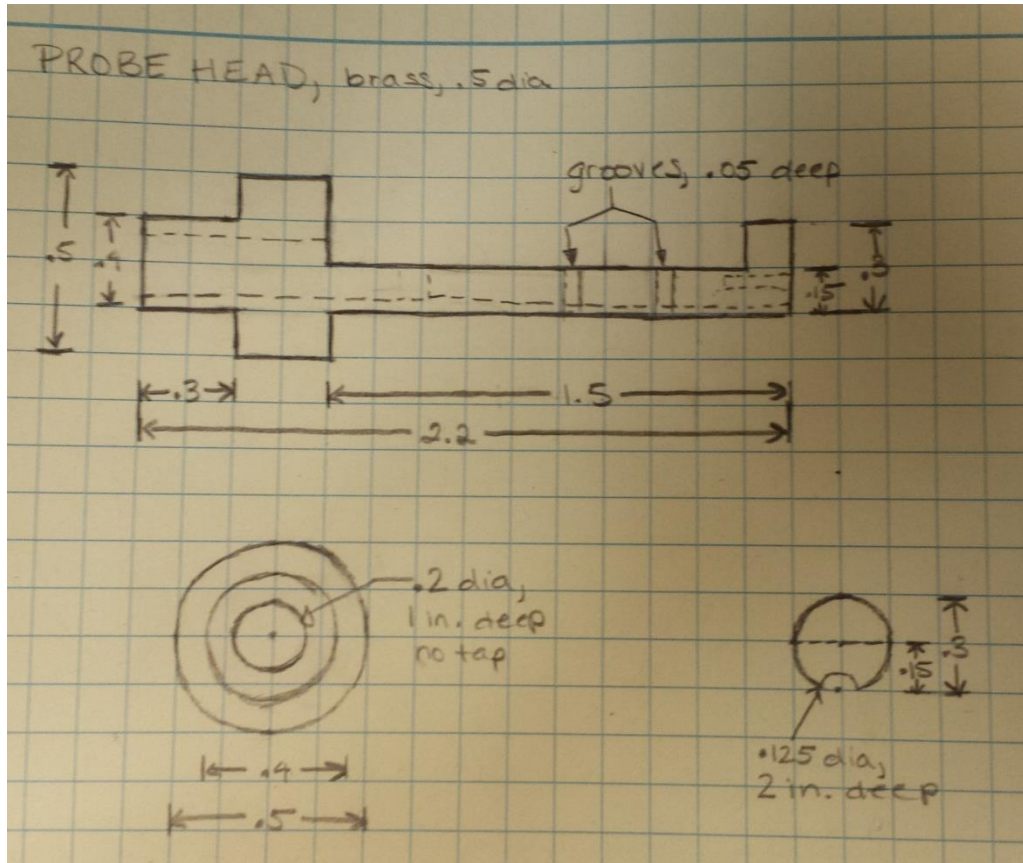 PROBE HEAD, brass, .5 dia
grooves, .05 deep
.5
.4
.15
.3
.3
1.5
2.2
.2 dia,
1 in. deep
no tap
.15
.3
.4
.5
.125 dia,
2 in. deep